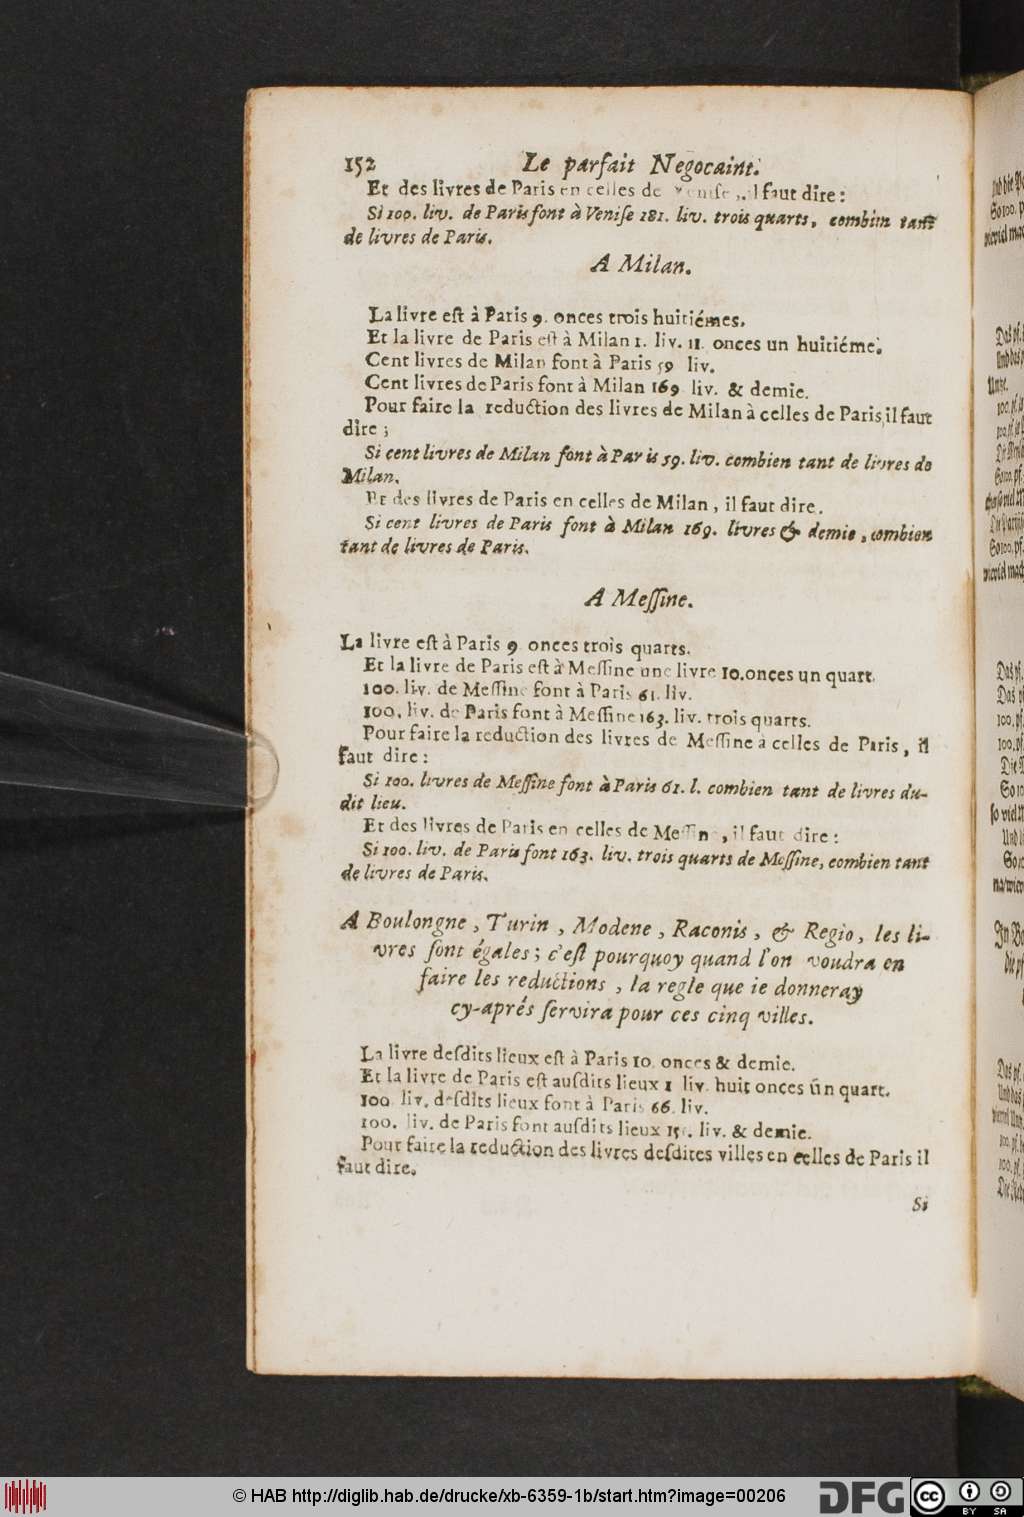 152 Le parfait Negocaint.
Et des livres de Paris en celles de Veniſe, il faut dîre:
Si 100. liv. de Paris font à Veniſe 181. liv. trois quarts, combien tant
de livres de Paris.
A Milan.
La livre eſt à Paris 9. onces trois huitiémes.
Et la livre de Paris eſt à Milan 1. liv. 11. onces un huitiéme.
Cent livres de Milan font à Paris 59 liv.
Cent livres de Paris font à Milan 169 liv. & demie.
Pour faire la reduction des livres de Milan à celles de Paris, il faut
dîre;
Si cent livres de Milan font à Paris 59. liv. combien tant de livres de
Milan.
Et des livres de Paris en celles de Milan, il faut dire.
Si cent livres de Paris font à Milan 169. livres & demie, combien
tant de livres de Paris.
A Meſſine.
La livre eſt à Paris 9 onces trois quarts.
Et la livre de Paris eſt à Meſſine une livre 10. onces un quart.
100. liv. de Meſſine font à Paris 61. liv.
100. liv. de Paris font à Meſſine 163. liv. trois quarts.
Pour faire la reduction des livres de Meſſine à celles de Paris, il
faut dire:
Si 100. livres de Meſſine font à Paris 61. l. combien tant de livres du-
dit lieu.
Et des livres de Paris en celles de Meſſine, il faut dire:
Si 100. liv. de Paris font 163. liv. trois quarts de Meſſine, combien tant
de livres de Paris.
A Boulongne, Turin, Modene, Raconis, & Regio, les li-
vres ſont égales; c'eſt pourquoy quand l'on voudra en
faire les reductions, la regle que ie donneray
cy-aprés ſervira pour ces cinq villes.
La livre deſdits lieux eſt à Paris 10. onces & demie.
Et la livre de Paris eſt auſdits lieux 1 liv. huit onces un quart.
100. liv. deſdits lieux font à Paris 66. liv.
100. liv. de Paris font auſdits lieux liv. & demie.
Pour faire la reduction des livres deſdites villes en celles de Paris il
faut dire.
Si
© HAB http://diglib.hab.de/drucke/xb-6359-1b/start.htm?image=00206
DFG
cc BY SA